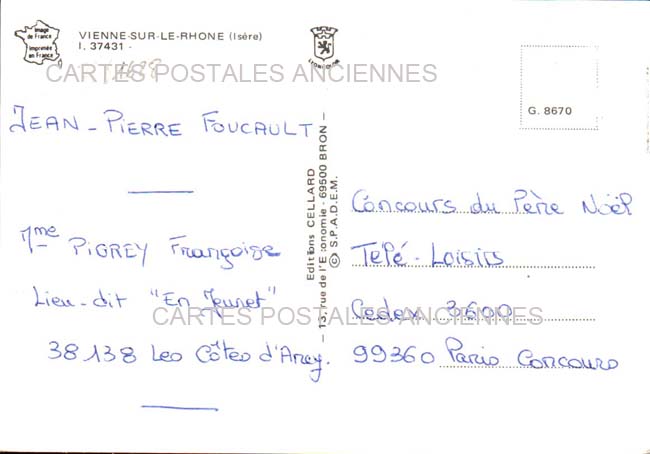 Image
de France
Imprimée
en France
VIENNE-SUR-LE-RHONE (Isère)
I. 37431 -
LYONCOLOR
CARTES POSTALES ANCIENNES
G. 8670
JEAN-PIERRE FOUCAULT
Mme PIGREY Françoise
Lieu-dit "En Jeunet"
38138 Les Côtes d'Arey.
Editions CELLARD
— 13, rue de l'Economie - 69500 BRON —
© S.P.A.D.E.M.
Concours du Père Noël
Télé-Loisirs
Cedex 3600
99360 Paris Concours
CARTES POSTALES ANCIENNES